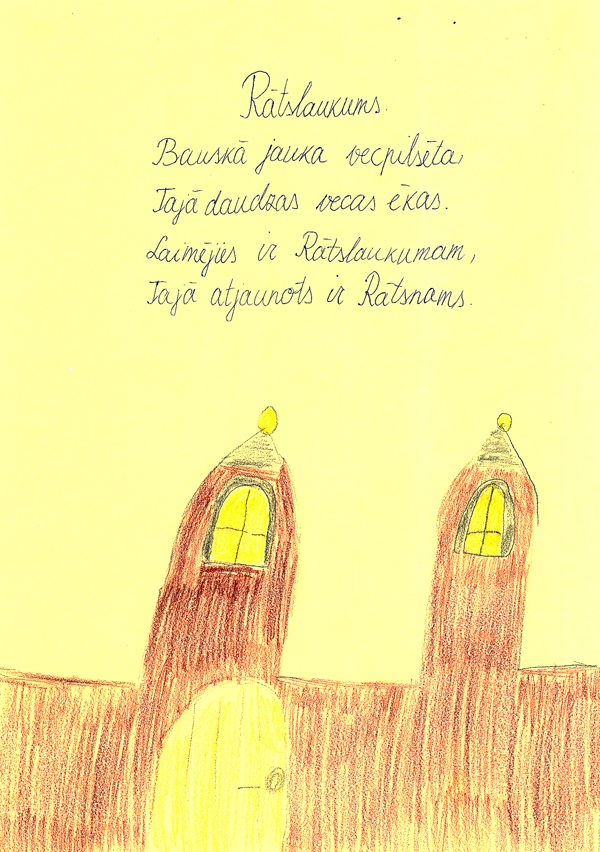 Rātslaukums.
Bauskā jauka vecpilsēta,
Tajā daudzas vecas ēkas.
Laimējies ir Rātslaukumam,
Tajā atjaunots ir Rātsnams.